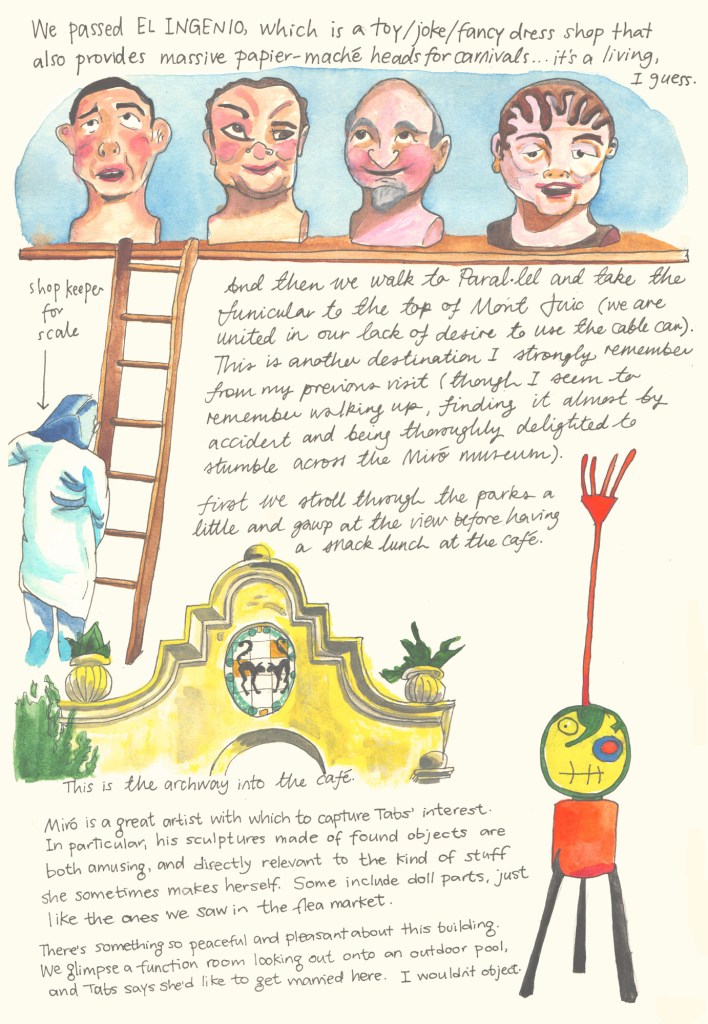 We passed EL INGENIO, which is a toy/joke/fancy dress shop that
also provides massive papier-maché heads for carnivals... it's a living,
I guess.
shop keeper
for
scale
And then we walk to Paral·lel and take the
funicular to the top of Mont Juic (we are
united in our lack of desire to use the cable car).
This is another destination I strongly remember
from my previous visit (though I seem to
remember walking up, finding it almost by
accident and being thoroughly delighted to
stumble across the Miró museum).
First we stroll through the parks a
little and gawp at the view before having
a snack lunch at the café.
This is the archway into the café.
Miró is a great artist with which to capture Tabs' interest.
In particular, his sculptures made of found objects are
both amusing, and directly relevant to the kind of stuff
she sometimes makes herself. Some include doll parts, just
like the ones we saw in the flea market.
There's something so peaceful and pleasant about this building.
We glimpse a function room looking out onto an outdoor pool,
and Tabs says she'd like to get married here. I wouldn't object.